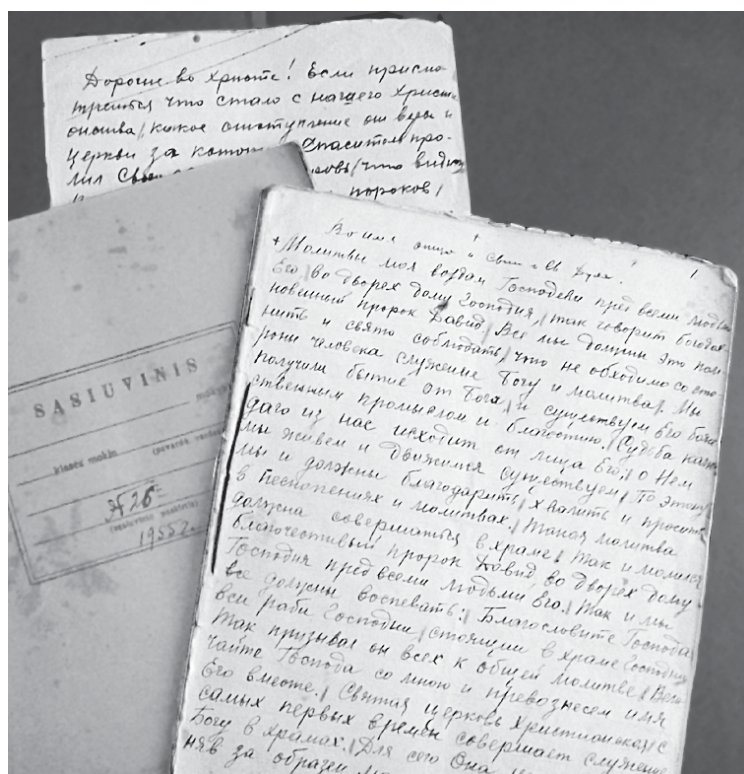 Дорогие во Христе! Если присмо
треться что стало с нашего Христи
онства, какое отступление от веры и
церкви за которую Спаситель про-
лил Свою кровь, что видно
пороков,
SĄSIUVINIS
mokyklos
klasės mokin
(pavardė, vardas)
№ 26
1955 г.
Во имя отца и Сына и Св Духа. 1
+Молитвы моя воздам Господеви пред всеми людьми
Его, во дворех дому Господня, так говорит богодох
новенный пророк Давид, Все мы должны это пом
нить и свято соблюдать, что не обходимо со сто
роны человека служение Богу и молитва, Мы
получили бытие от Бога, и существуем Его боже
ственным промыслом и благостию, Судьба каж
даго из нас исходит от лица Его, о Нем
мы живем и движимся существуем, По этому
мы и должны благодарить, хвалить и просить
в песнопениях и молитвах, Такая молитва
должна совершаться в храме, Так и молился
благочестивый пророк Давид, во дворех дому
Господня пред всеми людьми его, Так и мы
все должны воспевать: Благословите Господа
вси раби Господни, стоящии в храме Господни
Так призывал он всех к общей молитве, Вели
чайте Господа со мною и превознесем имя
Его вместе, Святая церковь Христионская, с
самых первых времен совершает служение
Богу в храмах, Для сего Она
няв за образец